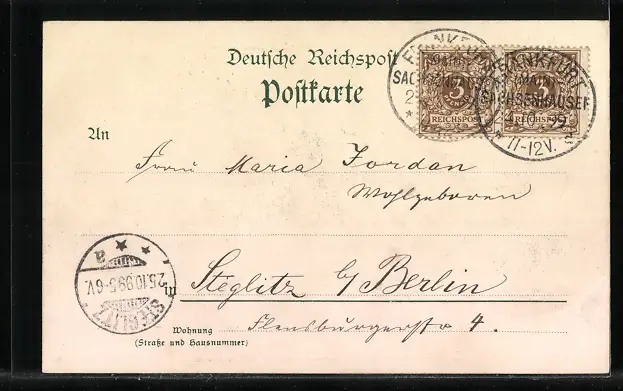 Deutsche Reichspost
Postkarte
FRANKFURT
(MAIN)
SACHSENHAUSEN
11-12V.
3
REICHSPOST
3
REICHSPOST
An
Frau Maria Jordan
Wohlgeboren
in Steglitz b/ Berlin
Flensburgerstr 4.
Wohnung
(Straße und Hausnummer)
STEGLITZ
25.10.99.5-6V.
a